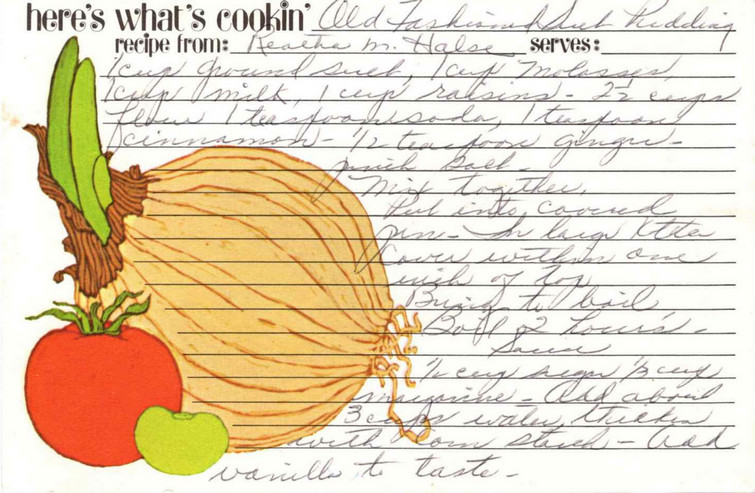 here's what's cookin' Old Fashioned Suet Pudding
recipe from: Reatha M. Halse serves:
1 cup ground suet, 1 cup molasses,
1 cup milk, 1 cup raisins - 2½ cups
flour 1 teaspoon soda, 1 teaspoon
cinnamon - ½ teaspoon ginger -
pinch salt -
Mix together,
Put into covered
pan - In large kttle
cover within one
inch of top
Bring to boil
Boil 2 hours -
Sauce
½ cup sugar ⅓ cup
margarine - Add about
3 cups water, thicken
with corn starch - Add
vanilla to taste -